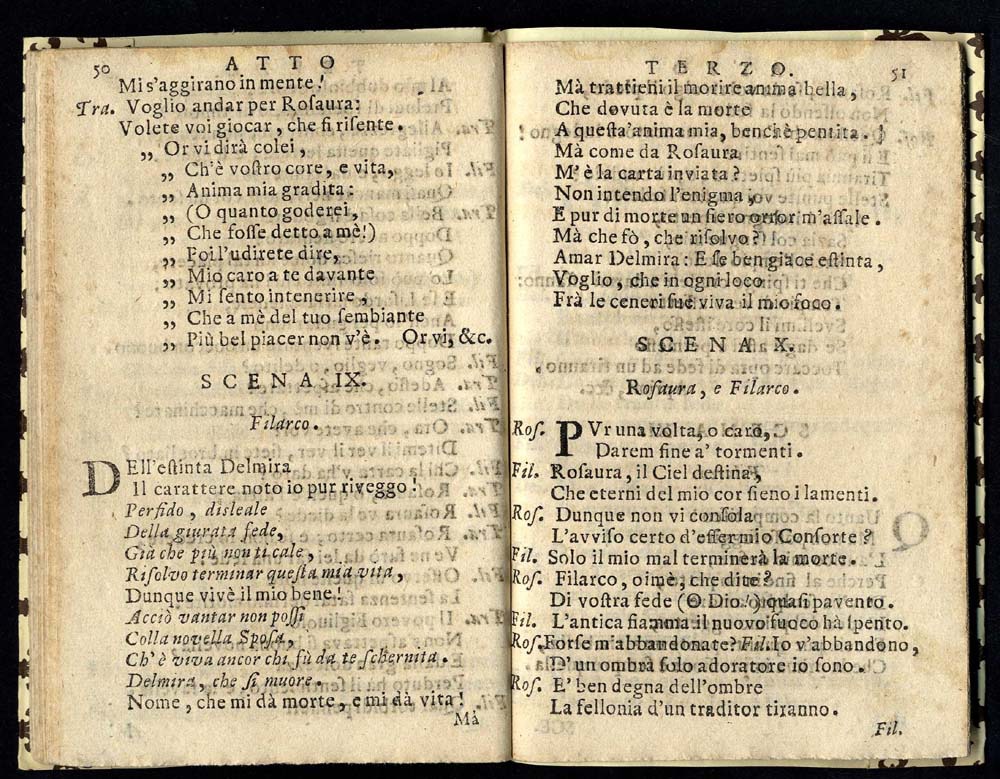 50 ATTO
Mi s'aggirano in mente!
Tra. Voglio andar per Rosaura:
Volete voi giocar, che si risente.
„ Or vi dirà colei,
„ Ch'è vostro core, e vita,
„ Anima mia gradita:
„ (O quanto goderei,
„ Che fosse detto a mè!)
„ Poi l'udirete dire,
„ Mio caro a te davante
„ Mi sento intenerire,
„ Che a mè del tuo sembiante
„ Più bel piacer non v'è. Or vi, &c.
SCENA IX.
Filarco.
DEll'estinta Delmira
Il carattere noto io pur riveggo!
Perfido, disleale
Della giurata fede,
Già che più non ti cale,
Risolvo terminar questa mia vita,
Dunque vivè il mio bene!
Acciò vantar non possi
Colla novella Sposa,
Ch'è viva ancor chi fù da te schernita.
Delmira, che si muore.
Nome, che mi dà morte, e mi dà vita!
Mà
TERZO. 51
Mà trattieni il morire anima bella,
Che dovuta è la morte
A questa'anima mia, benchè pentita.
Mà come da Rosaura
M'è la carta inviata?
Non intendo l'enigma,
E pur di morte un fiero orror m'assale.
Mà che fò, che risolvo?
Amar Delmira: E se ben giace estinta,
Voglio, che in ogni loco
Frà le ceneri sue viva il mio foco.
SCENA X.
Rosaura, e Filarco.
Ros. PUr una volta, o caro,
Darem fine a' tormenti.
Fil. Rosaura, il Ciel destina,
Che eterni del mio cor sieno i lamenti.
Ros. Dunque non vi consola
L'avviso certo d'esser mio Consorte?
Fil. Solo il mio mal terminerà la morte.
Ros. Filarco, oimè, che dite?
Di vostra fede (O Dio!) quasi pavento.
Fil. L'antica fiamma il nuovo fuoco hà spento.
Ros. Forse m'abbandonate? Fil. Io v'abbandono,
D'un ombra solo adoratore io sono.
Ros. E' ben degna dell'ombre
La fellonia d'un traditor tiranno.
Fil.